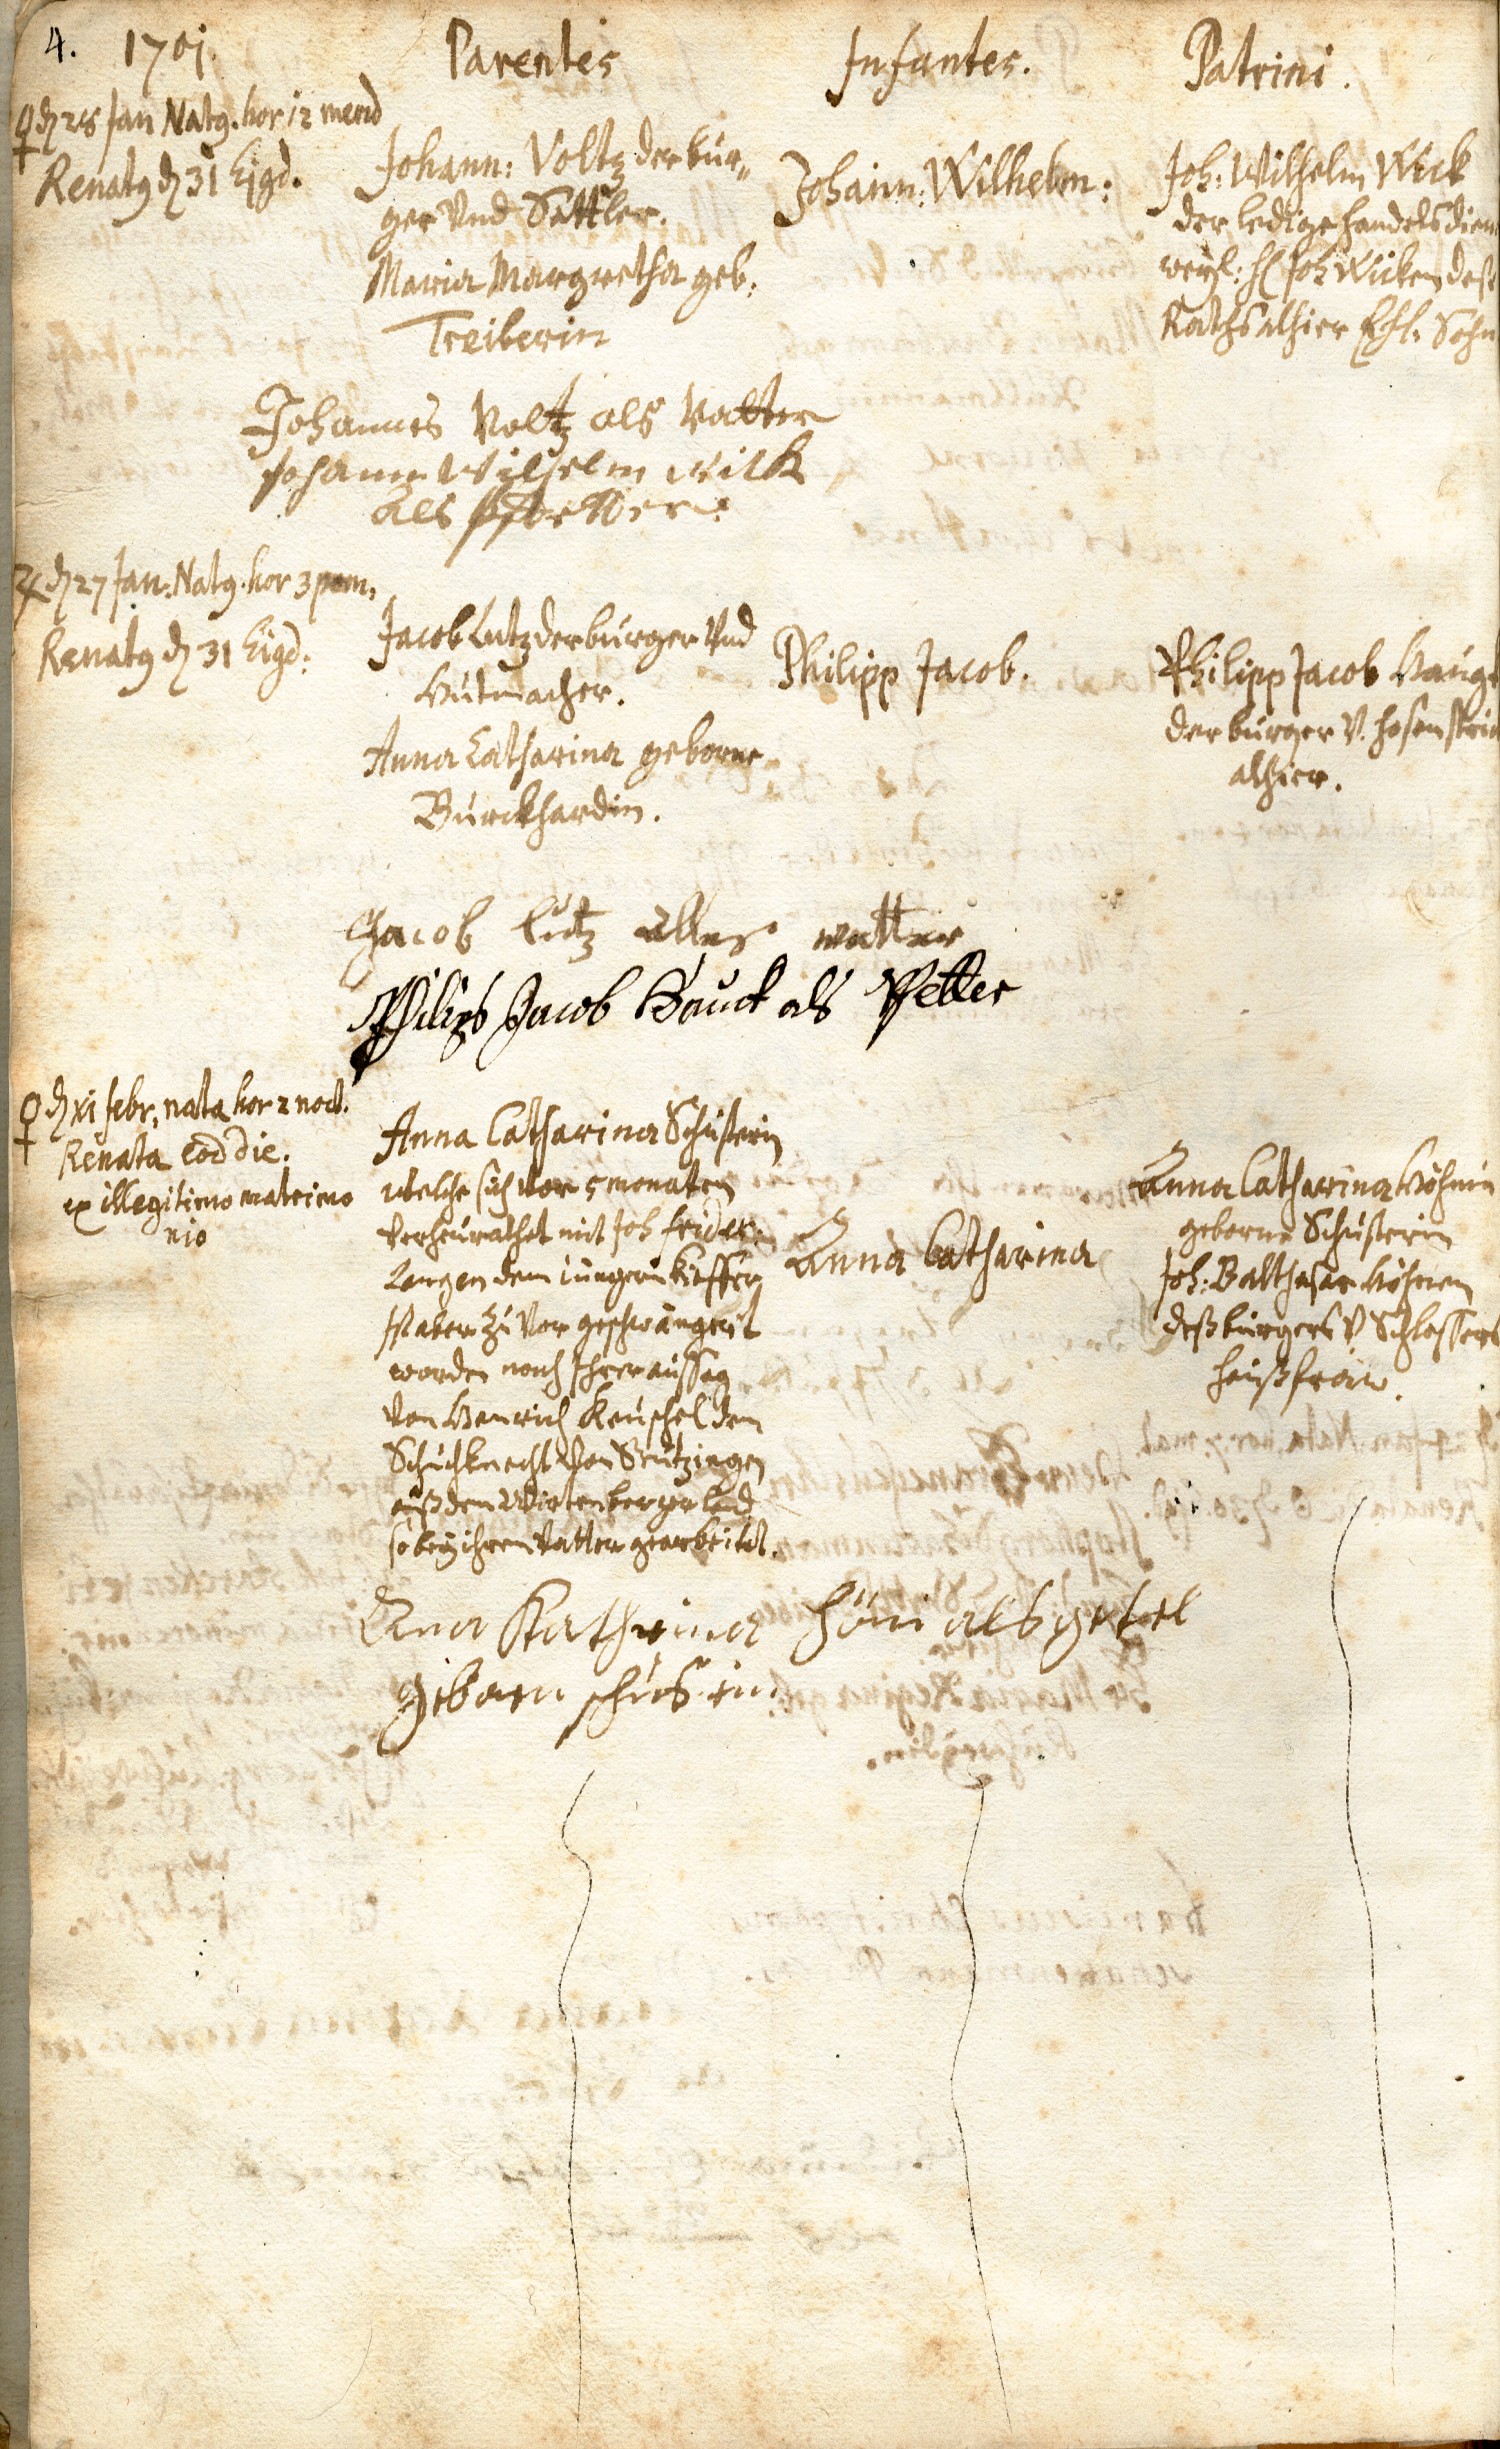 4. 1701. Parentes Infantes. Patrini.
♀ dh 28 Jan Natg. hor 12 merid
Renatg dh 31 Ejgd.
Johann: Voltz der bur„
ger Vnd Sattler.
Maria Margretha geb:
Treiberin
Johann: Wilhelm:
Joh: Wilhelm Wick
der ledige handelsdien
weyl: H Joh Wicken deß
Raths alhier Ehl. Sohn
Johannes Voltz als Vatter
Johann Wilhelm Wick
als Pfetter
♃ dh 27 Jan: Natg. hor 3 pom.
Renatg dh 31 Eigd:
Jacob Lutz der burger Vnd
Hutmacher.
Anna Catharina geborne
Burckhardin.
Philipp Jacob.
Philipp Jacob Haug
der burger V. hosenstri
alhier.
Jacob Lutz alles vatter
Philips Jacob Hauck als Pfetter
♀ dh xi febr. nata hor 2 noct.
Renata eod die.
ex illegitimo matrimo
nio
Anna Catharina Schusterin
welche sich vor 5 monaten
verheurathet mit Joh frider:
Langen dem jungern Kieffer
ist aber zu vor geschwängert
worden nach Ihrer aussag
von Henrich Keuschel dem
Schuchknecht von
auß dem Wirtenberger Ld
so bey ihrem Vatter gearbeitet.
Anna Catharina
Anna Catharina Höhnin
geborne Schusterin
Joh: Balthasar Höhnen
deß burgers V Schlossers
haußfraw.
Ana Katharina Höni als getel
geboren schusterin